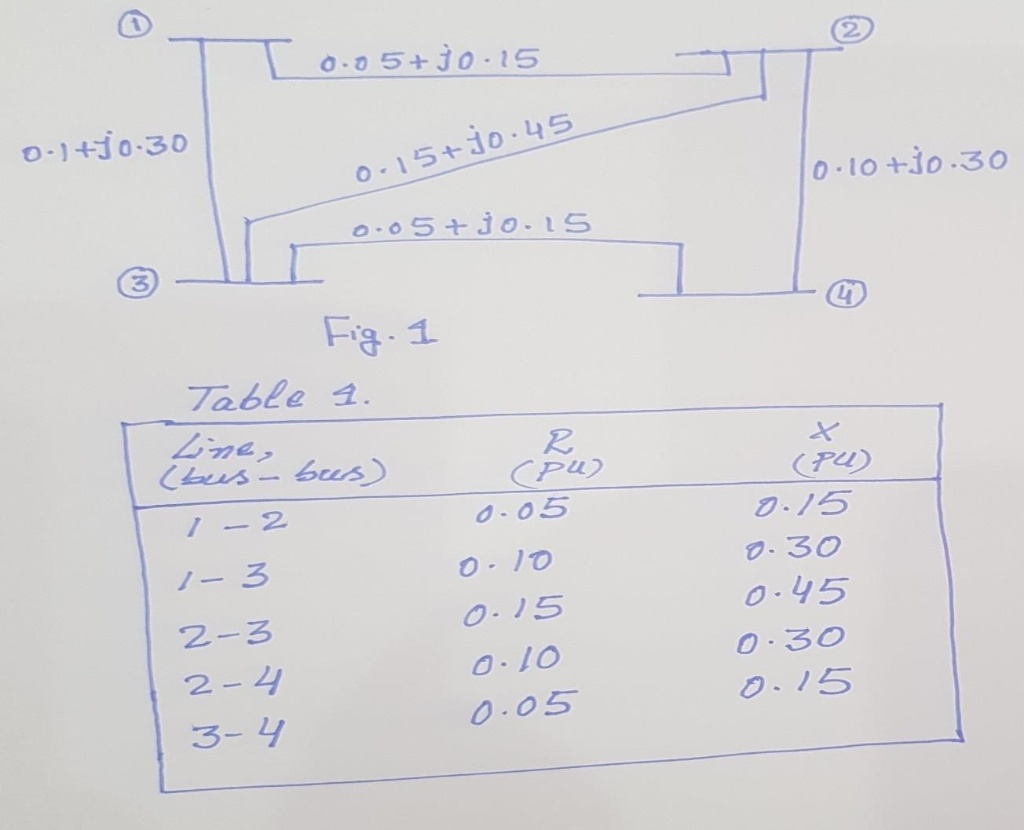 ① ②
0.05+j0.15
0.1+j0.30
0.15+j0.45
0.10+j0.30
0.05+j0.15
③ ④
Fig. 1
Table 1.
Line, R X
(bus-bus) (PU) (PU)
1-2 0.05 0.15
1-3 0.10 0.30
2-3 0.15 0.45
2-4 0.10 0.30
3-4 0.05 0.15